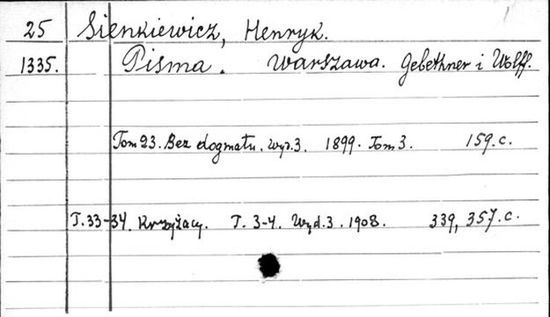 25 Sienkiewicz, Henryk.
1335. Pisma. Warszawa. Gebethner i Wolff.
Tom 23. Bez dogmatu. wyd.3. 1899. Tom 3. 159.c.
T.33-34. Krzyżacy. T. 3-4. Wyd.3. 1908. 339, 357.c.